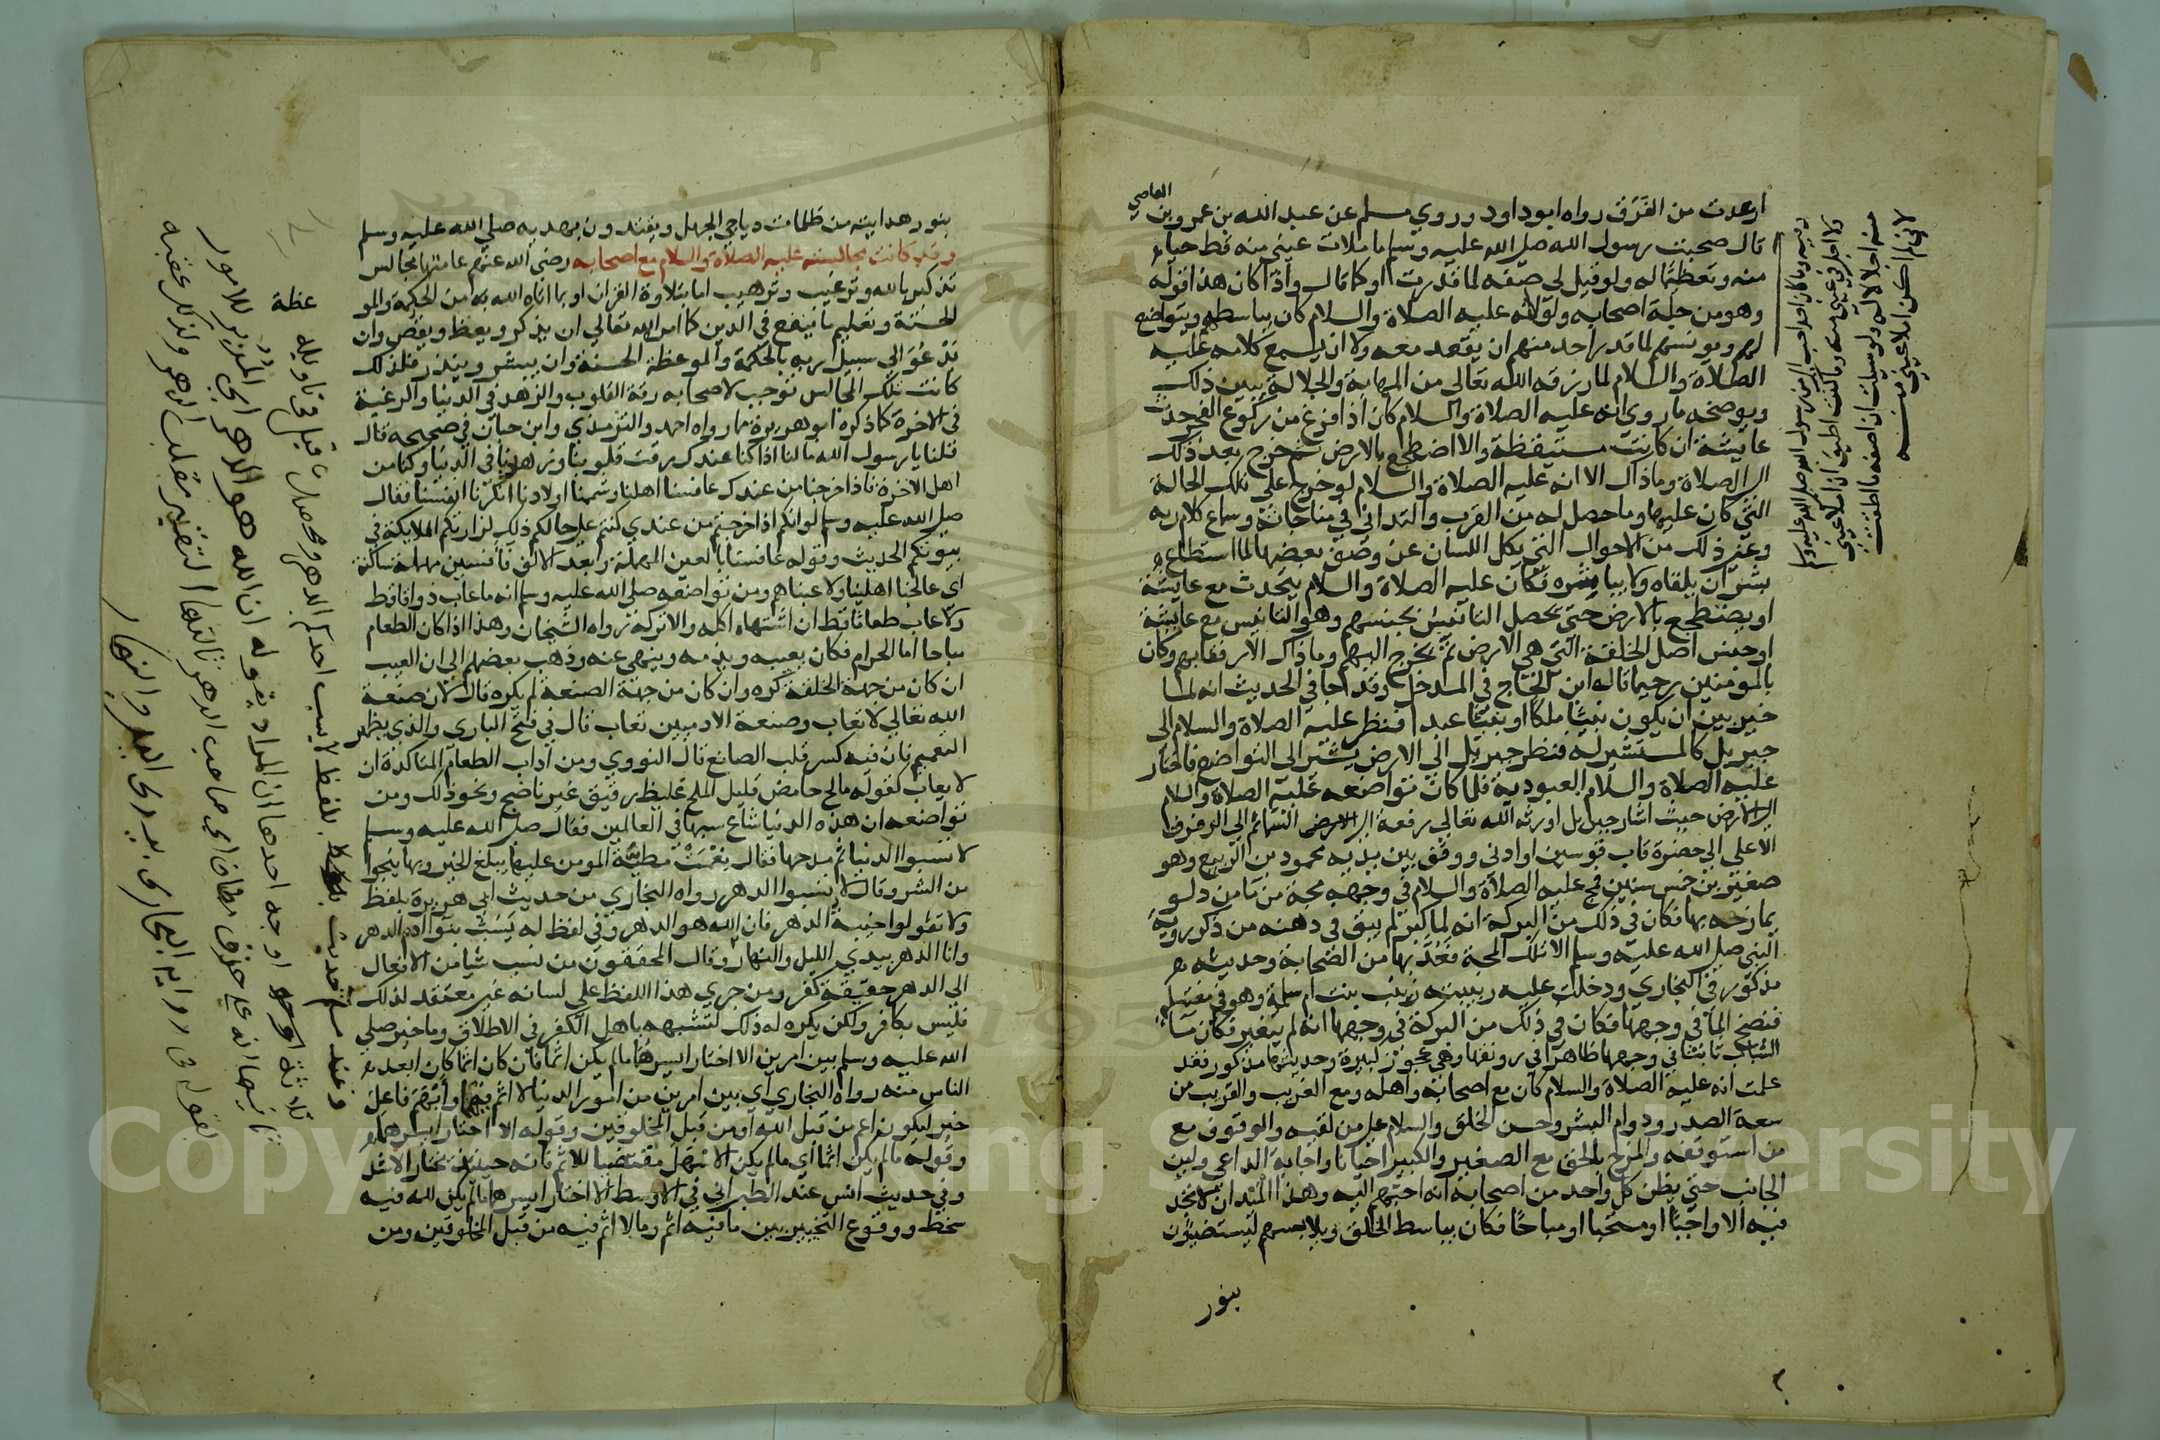 ارعدت من الفرق رواه ابو داود وروي مسلم عن عبد الله بن عمرو بن
العاصي
قال صحبت رسول الله صلى الله عليه وسلم ما ملات عيني منه قط حياء
منه وتعظيما له ولو قيل لي صفه لما قدرت او كما قال واذا كان هذا قوله
وهو من جلة اصحابه ولولا انه عليه الصلاة والسلام كان يباسطهم ويتواضع
لهم ويونسهم لما قدر احد منهم ان يقعد معه ولا ان يسمع كلامه عليه
الصلاة والسلام لما رزقه الله تعالى من المهابة والجلالة يبين ذلك
ويوضحه ما روي انه عليه الصلاة والسلام كان اذا فرغ من ركوع الفجر حدث
عايشة ان كانت مستيقظة والا اضطجع بالارض ثم خرج بعد ذلك
الى الصلاة وما ذاك الا انه عليه الصلاة والسلام لو خرج على تلك الحالة
التي كان عليها وما حصل له من القرب والتداني في مناجاته وسماع كلام ربه
وغير ذلك من الاحوال التي يكل اللسان عن وصف بعضها لما استطاع
بشر ان يلقاه ولا يباشره فكان عليه الصلاة والسلام يتحدث مع عايشة
او يضطجع بالارض حتى يحصل التانيس بجنسهم وهو التانيس مع عايشة
او جنس اصل الخلقة التي هي الارض ثم يخرج اليهم وما ذاك الا رفقا بهم وكان
بالمومنين رحيما قاله ابن الحاج في المدخل وقد جا في الحديث انه لما
خير بين ان يكون نبيا ملكا او نبيا عبدا فنظر عليه الصلاة والسلام الى
جبريل كالمستشير له فنظر جبريل الى الارض يشير الى التواضع فاختار
عليه الصلاة والسلام العبودية فلما كان تواضعه عليه الصلاة والسلام
الى الارض حيث اشار جبريل اورثه الله تعالى رفعة الى السماء ثم الى الرفرف
الاعلى الى حضرة قاب قوسين او ادنى ووقف بين يديه محمود بن الربيع وهو
صغير بن خمس سنين فمج عليه الصلاة والسلام في وجهه مجة من ما من دلو
يمازحه بها فكان في ذلك من البركة انه لما كبر لم يبق في ذهنه من ذكر روية
النبي صلى الله عليه وسلم الا تلك المجة فعد بها من الصحابة وحديثه
مذكور في البخاري ودخلت عليه ربيبته زينب بنت ام سلمة وهو في مغتسله
فنضح الما في وجهها فكان في ذلك من البركة في وجهها انه لم يتغير فكان ما
الشباب ثابتا في وجهها ظاهرا في رونقها وهي عجوز كبيرة وحديثها مذكور فقد
علمت انه عليه الصلاة والسلام كان مع اصحابه واهله ومع الغريب والقريب من
سعة الصدر ودوام البشر وحسن الخلق والسلام على من لقيه والوقوف مع
من استوقفه والمزح بالحق مع الصغير والكبير احيانا واجابة الداعي ولين
الجانب حتى يظن كل واحد من اصحابه انه احبهم اليه وهذا الميدان لا تجد
فيه الا واجبا او مستحبا او مباحا فكان يباسط الخلق ويلابسهم ليستضيئون
بنور
ولا اجل في عيني منه وما كنت اطيق ان املا عيني
منه اجلالا له ولو سيلت ان اصفه ما اطقت
لاني لم اكن املا عيني منه
بنور هدايته من ظلمات دياجي الجهل ويقتدون بهديه صلى الله عليه وسلم
وقد كانت مجالسته عليه الصلاة والسلام مع اصحابه رضي الله عنهم عامتها مجالس
تذكير بالله وترغيب وترهيب اما بتلاوة القران او بما اتاه الله به من الحكمة والمو
عظة
الحسنة وتعليم ما ينفع في الدين كما امر الله تعالى ان يذكر ويعظ ويقص وان
يدعو الى سبيل ربه بالحكمة والموعظة الحسنة وان يبشر وينذر فلذلك
كانت تلك المجالس توجب لاصحابه رقة القلوب والزهد في الدنيا والرغبة
في الاخرة كما ذكره ابو هريرة فيما رواه احمد والترمذي وابن حبان في صحيحه قال
قلنا يا رسول الله ما لنا اذا كنا عندك رقت قلوبنا وزهدنا في الدنيا وكنا من
اهل الاخرة فاذا خرجنا من عندك عافسنا اهلنا وشممنا اولادنا انكرنا انفسنا فقال
صلى الله عليه وسلم لو انكم اذا خرجتم من عندي كنتم على حالكم ذلك لزارتكم الملايكة في
بيوتكم الحديث وقوله عافسنا بالعين المهملة وبعد الالف فا فسين مهملة ساكنة
اى عالجنا اهلينا ولاعبناهم ومن تواضعه صلى الله عليه وسلم انه ما عاب ذواقا قط
ولا عاب طعاما قط ان اشتهاه اكله والا تركه رواه الشيخان وهذا اذا كان الطعام
مباحا اما الحرام فكان يعيبه ويذمه وينهى عنه وذهب بعضهم الى ان العيب
ان كان من جهة الخلقة كره وان كان من جهة الصنعة لم يكره قال لان صنعة
الله تعالى لا تعاب وصنعة الادميين تعاب قال في فتح الباري والذي يظهر
التعميم فان فيه كسر قلب الصانع قال النووي ومن اداب الطعام المتاكدة ان
لا يعاب كقوله مالح حامض قليل الملح غليظ رقيق غير ناضج ونحو ذلك ومن
تواضعه ان هذه الدنيا شاع سبها في العالمين فقال صلى الله عليه وسلم
لا تسبوا الدنيا ثم مدحها فقال نعمت مطية المومن عليها يبلغ الخير وبها ينجوا
من الشر وقال لا تسبوا الدهر رواه البخاري من حديث ابي هريرة بلفظ
ولا تقولوا خيبة الدهر فان الله هو الدهر وفي لفظ له يسب بنو ادم الدهر
وانا الدهر بيدي الليل والنهار وقال المحققون من نسب شيا من الافعال
الى الدهر حقيقة كفر ومن جرى هذا اللفظ على لسانه غير معتقد لذلك
فليس بكافر ولكن يكره له ذلك لتشبهه باهل الكفر في الاطلاق وما خير صلى
الله عليه وسلم بين امرين الا اختار ايسرهما ما لم يكن اثما فان كان اثما كان ابعد
الناس منه رواه البخاري اى بين امرين من امور الدنيا لا اثم فيهما وابهم فاعل
خير ليكون اعم من قبل الله او من قبل المخلوقين وقوله الا اختار ايسرهما
وقوله ما لم يكن اثما اى ما لم يكن الاسهل مقتضيا للاثم فانه حينئذ يختار الاشد
وفي حديث انس عند الطبراني في الاوسط الا اختار ايسرهما ما لم يكن لله فيه
سخط ووقوع التخيير بين ما فيه اثم وما لا اثم فيه من قبل المخلوقين ومن
وعند مسلم حديث بلفظ لا يسب احدكم الدهر ومحصل ما قيل في تاويله
ثلاثة اوجه احدها ان المراد بقوله ان الله هو الدهر اي المدبر للامور
ثانيها انه على حذف مضاف اي صاحب الدهر ثالثها التقدير مقلب الدهر ولذلك عقبه
بقوله في رواية البخاري بيدي الليل والنهار
Copyright © King Saud University